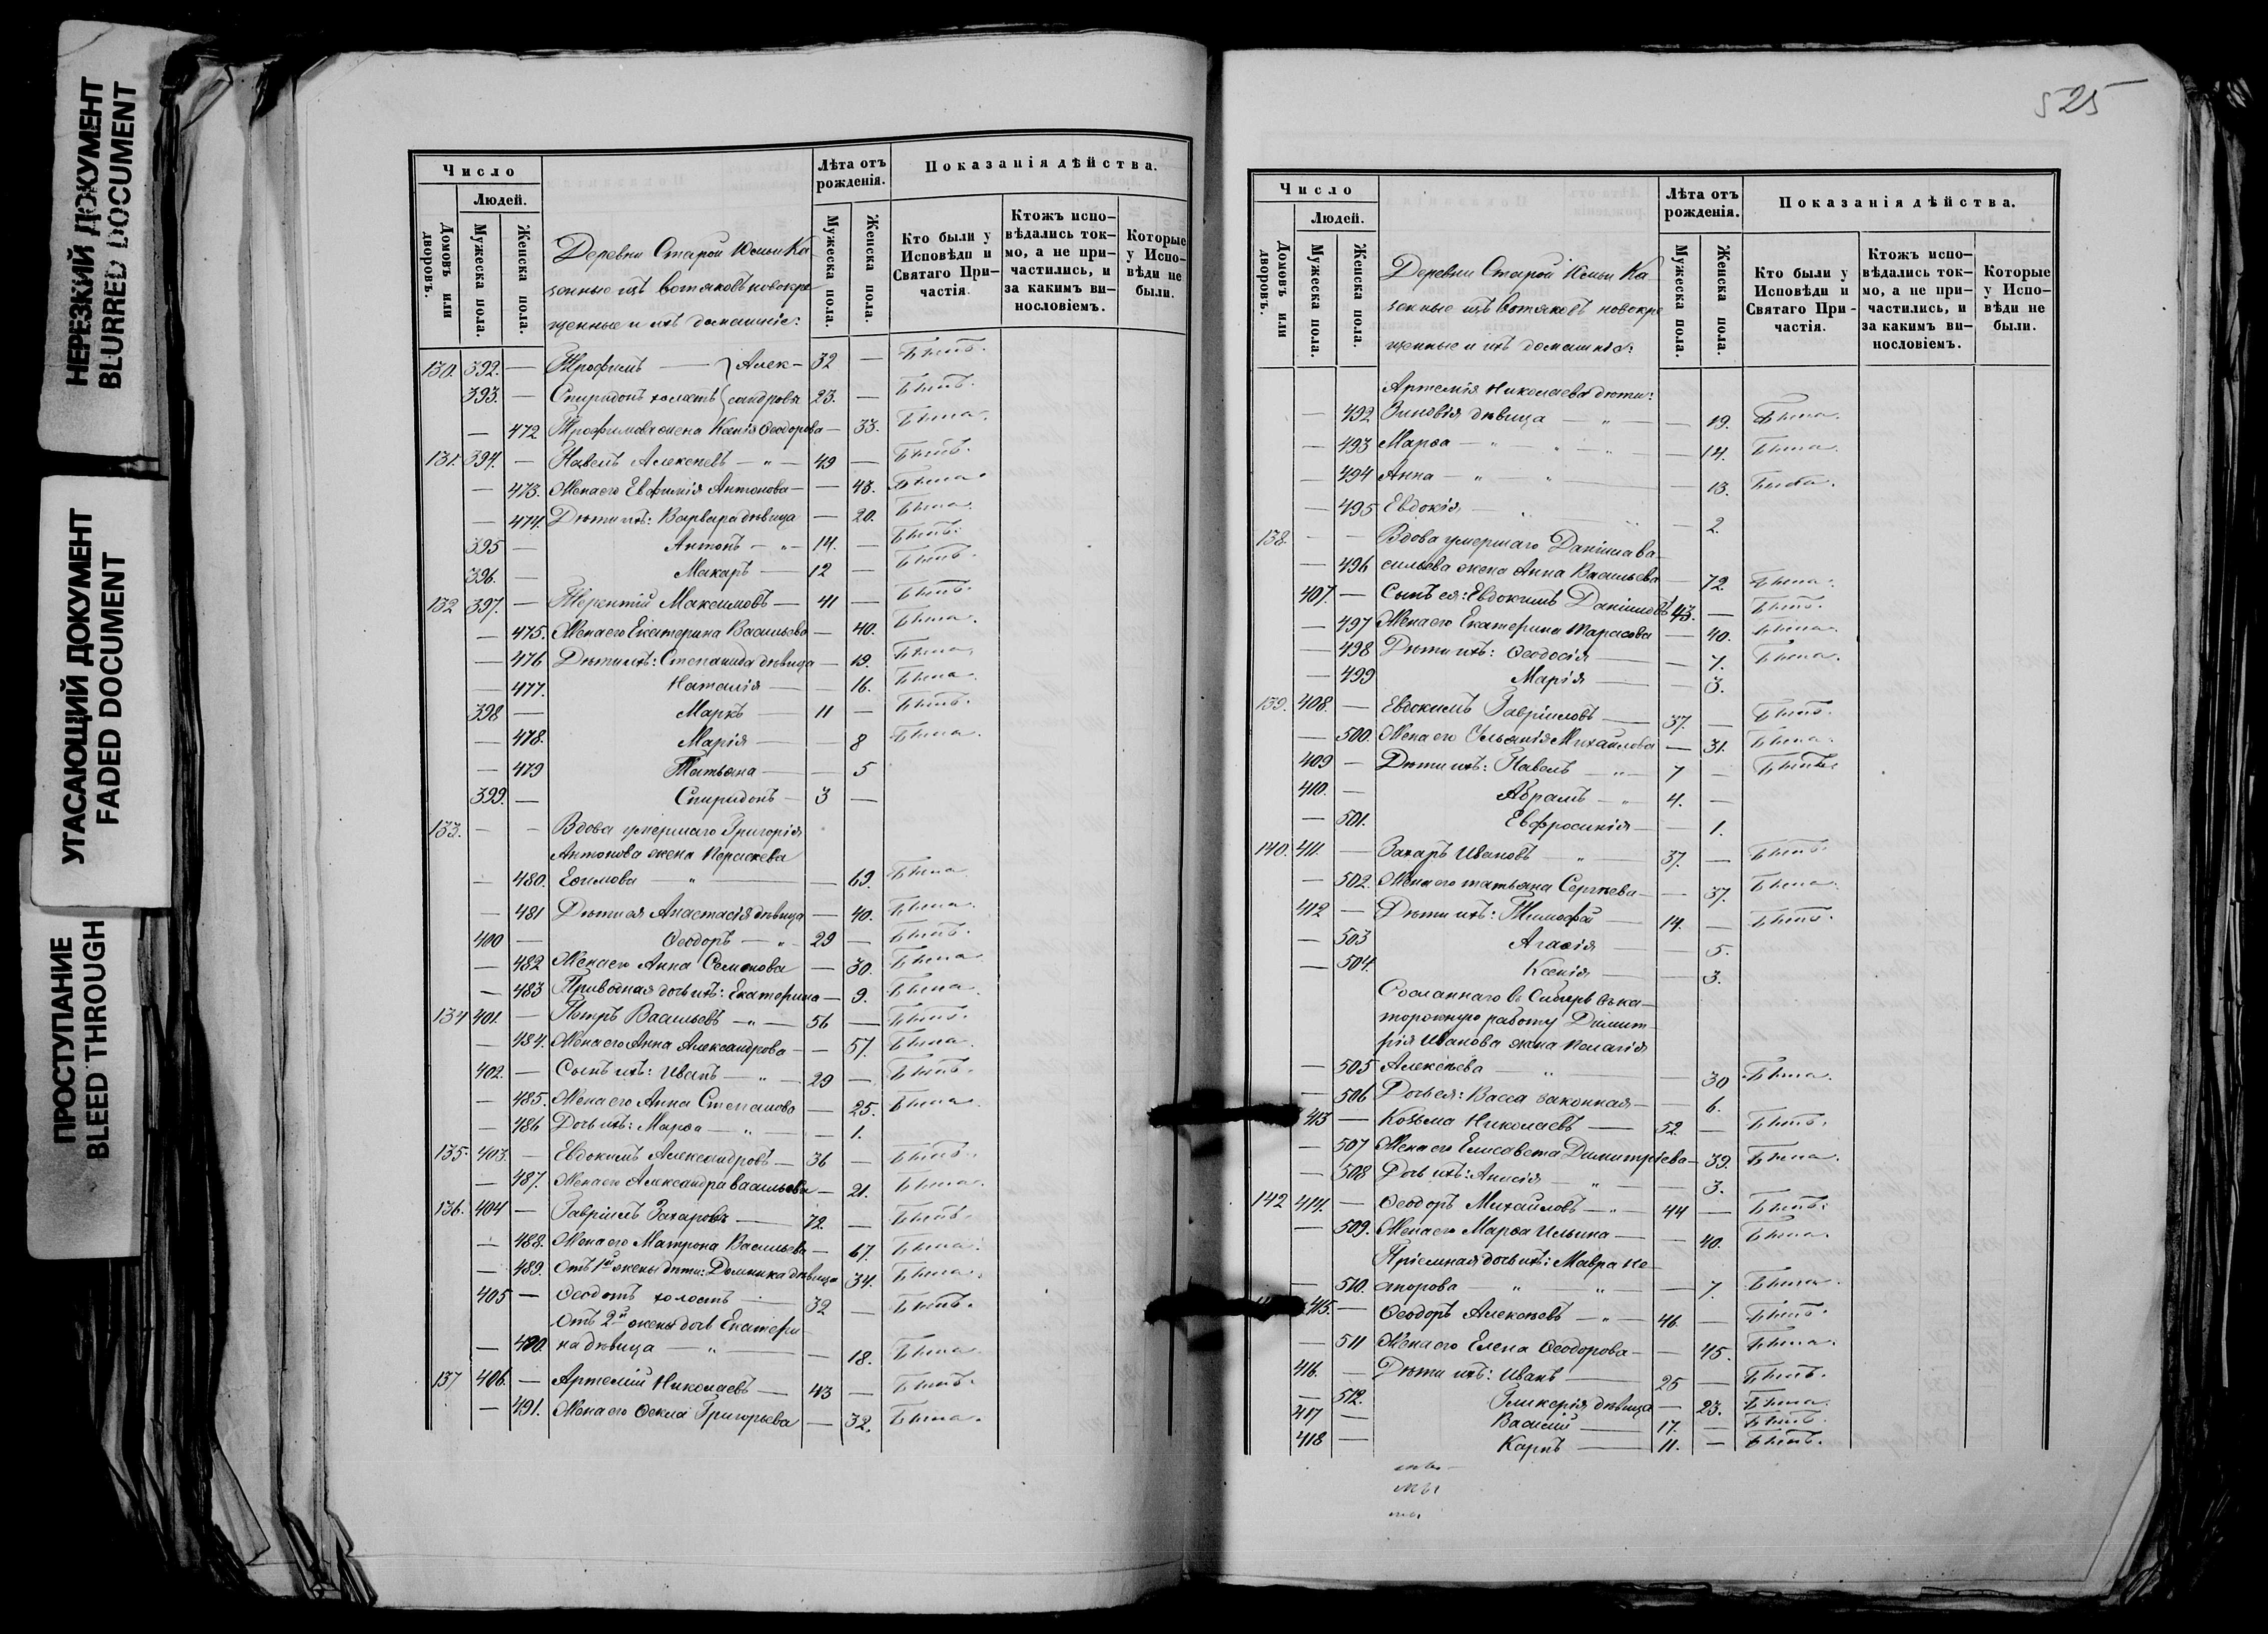 НЕРЕЗКИЙ ДОКУМЕНТ
BLURRED DOCUMENT
УГАСАЮЩИЙ ДОКУМЕНТ
FADED DOCUMENT
ПРОСТУПАНИЕ
BLEED THROUGH
Число
Людей.
Домовъ или дворовъ.
Мужеска пола.
Женска пола.
Деревни Старой Юмьи Ка-
зенные изъ вотяковъ новокре
щенные и ихъ домашніе:
Лѣта отъ рожденія.
Мужеска пола.
Женска пола.
Показанія дѣйства.
Кто были у Исповѣди и Святаго При-частія.
Ктожъ испо-вѣдались ток-мо, а не при-частились, и за какимъ ви-нословіемъ.
Которые у Испо-вѣди не были.
130. 392. — Трофимъ — } Алек- 32 — Былъ.
393. — Спиридонъ холостъ } сандровы 23. — Былъ.
— 472 Трофимова жена Ксенія Ѳеодорова — 33. Была.
131. 394. — Павелъ Алексѣевъ — " — 49 — Былъ.
— 473. Жена его Евфимія Антонова — — 43. Была.
— 474. Дѣти ихъ: Варвара дѣвица — 20. Была.
395 — Антонъ — " — 14. — Былъ.
396. — Макаръ — 12 — Былъ.
132 397. — Терентій Максимовъ — 41 — Былъ.
— 475. Жена его Екатерина Васильева — 40. Была.
— 476 Дѣти ихъ: Степанида дѣвица — 19. Была.
— 477. Наталія — — 16. Была.
398 — Маркъ — 11 — Былъ.
— 478. Марія — — 8 Была.
— 479 Татьяна — — 5
399. — Спиридонъ — 3 —
133. — — Вдова умершаго Григорія
Антонова жена Параскева
— 480. Ефимова — " — — 69. Была
— 481 Дѣти ея Анастасія дѣвица — 40. Была.
400 — Ѳеодоръ — " — 29 — Былъ.
— 482 Жена его Анна Семенова — 30. Была.
— 483 Приводная дочь ихъ: Екатерина — 9. Была.
134 401. — Петръ Васильевъ — " — 56 — Былъ.
— 484. Жена его Анна Александрова — — 57. Была.
402. — Сынъ ихъ: Иванъ — " — 29 — Былъ.
— 485. Жена его Анна Степанова — 25. Была.
— 486 Дочь ихъ: Марѳа — " — — 1.
135. 403. — Евдокимъ Александровъ — 36 — Былъ.
— 487. Жена его Александра Васильева — 21. Была.
136. 404 — Гавріилъ Захаровъ — 72. — Былъ.
— 488. Жена его Матрона Васильева — 67. Была.
— 489. Отъ 1й жены дѣти: Домника дѣвица 34. Была.
405 — Ѳеодотъ холостъ — 32 — Былъ.
Отъ 2й жены дочь Екатери
— 490. на дѣвица — " — — 18. Была.
137 406. — Артемій Николаевъ — 43 — Былъ.
— 491. Жена его Ѳекла Григорьева — 32. Была.
525
Число
Людей.
Домовъ или дворовъ.
Мужеска пола.
Женска пола.
Деревни Старой Юмьи Ка-
зенные изъ вотяковъ новокре
щенные и ихъ домашніе:
Лѣта отъ рожденія.
Мужеска пола.
Женска пола.
Показанія дѣйства.
Кто были у Исповѣди и Святаго При-частія.
Ктожъ испо-вѣдались ток-мо, а не при-частились, и за какимъ ви-нословіемъ.
Которые у Испо-вѣди не были.
Артемія Николаева дѣти:
— 492 Зиновія дѣвица — " — — 19. Была.
— 493 Марѳа — " — 14. Была.
— 494 Анна — " — 13. Была.
— 495 Евдокія — — 2.
138. — — Вдова умершаго Даніила Ва-
— 496 сильева жена Анна Васильева — 72. Была.
407. — Сынъ ея: Евдокимъ Даніиловъ 43. — Былъ.
— 497 Жена его Екатерина Тарасова — 40. Была.
— 498 Дѣти ихъ: Ѳеодосія — — 7. Была.
— 499 Марія — — 3.
139. 408. — Евдокимъ Гавріиловъ — 37. — Былъ.
— 500. Жена его Ульянія Михайлова — 31. Была.
409 — Дѣти ихъ: Павелъ — " — 7 — Былъ.
410. — Абрамъ — " 4. —
— 501. Евфросинія — — 1.
140. 411. — Захаръ Ивановъ — " — 37. — Былъ.
— 502. Жена его Татьяна Сергѣева — — 37. Была.
412 — Дѣти ихъ: Тимофей — 14. — Былъ.
— 503 Агафія — — 5.
— 504. Ксенія — — 3.
Сосланнаго въ Сибирь въ ка-
торожную работу Димит-
рія Иванова жена Пелагія
— 505 Алексѣева — " — — 30 Была.
— 506 Дочь ея: Васса законная — — 6.
413 — Козьма Николаевъ — 52. — Былъ.
— 507 Жена его Елисавета Димитріева — 39. Была.
— 508 Дочь ихъ: Анисія — " — — 3.
142 414. — Ѳеодоръ Михайловъ — " — 44 — Былъ.
— 509. Жена его Марѳа Ильина — — 40. Была.
Пріемная дочь ихъ: Мавра Не-
— 510. сторова — " — " — — 7. Была.
415. — Ѳеодоръ Алексѣевъ — " — 46. — Былъ.
— 511 Жена его Елена Ѳеодорова — — 45. Была.
416. — Дѣти ихъ: Иванъ — 25 — Былъ.
— 512. Гликерія дѣвица — 23. Была.
417 — Василій — 17. — Былъ.
418 — Карпъ — 11. — Былъ.